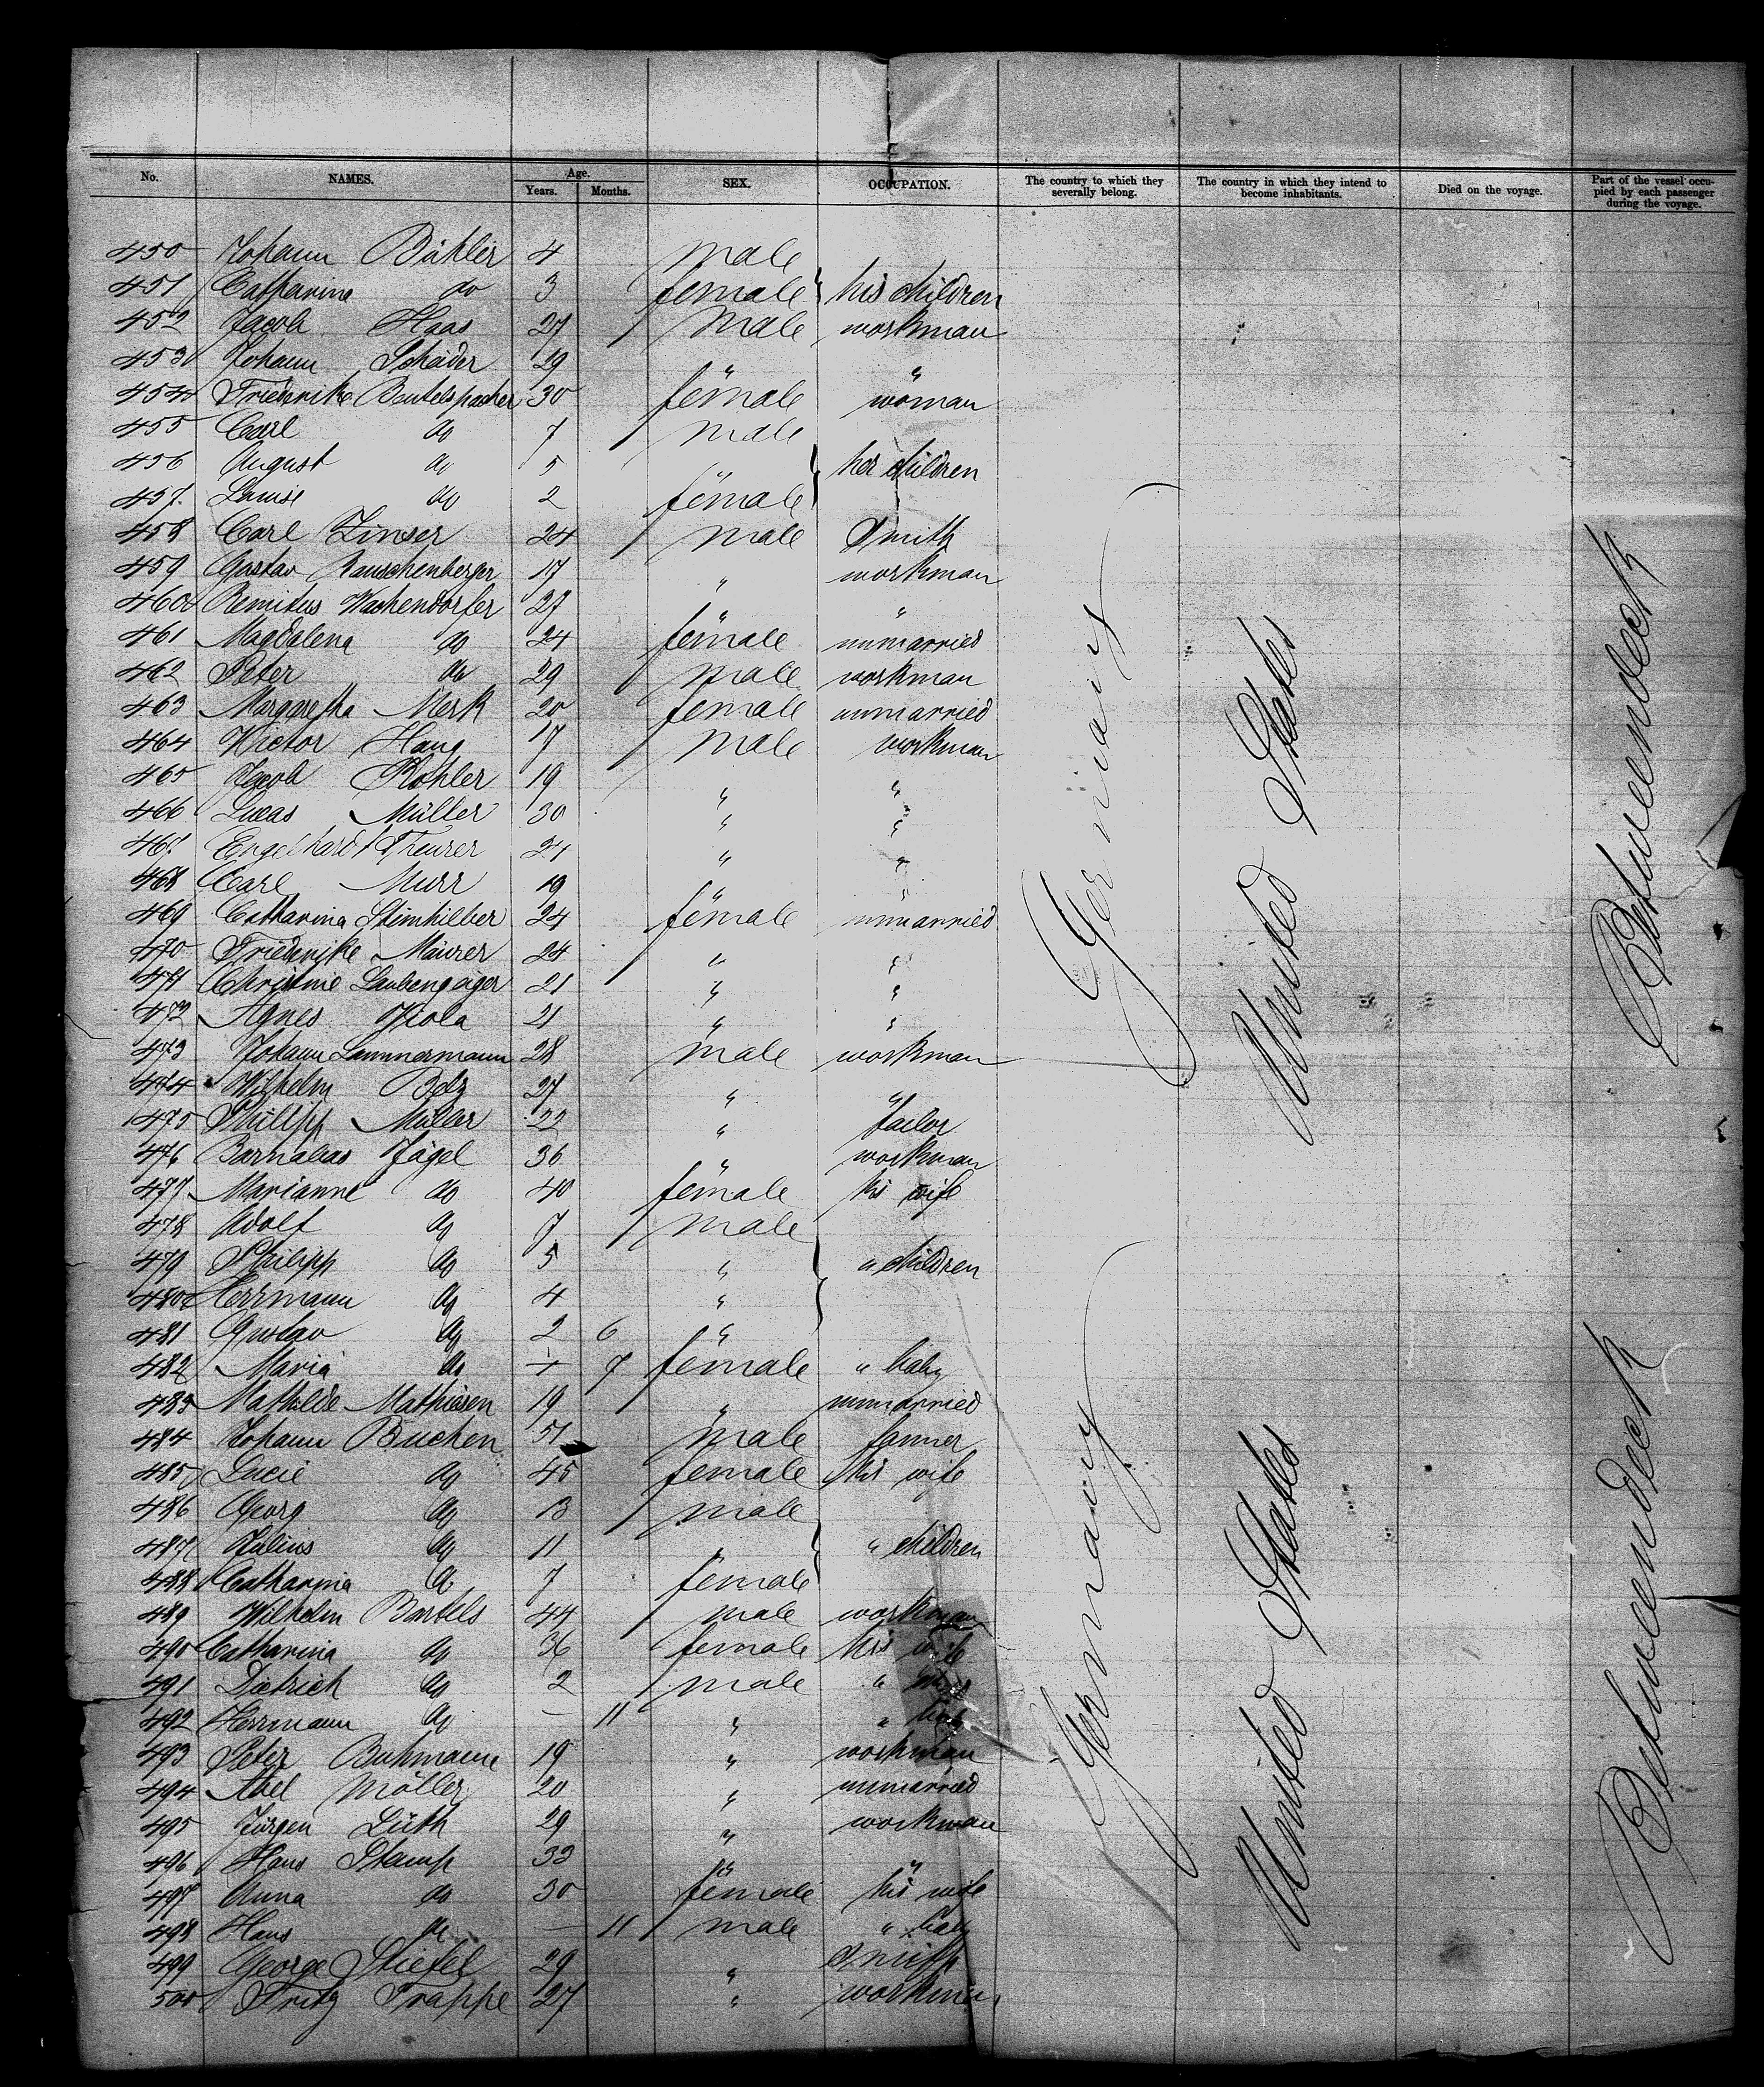 No. NAMES. Age. Years. Months. SEX. OCCUPATION. The country to which they severally belong. The country in which they intend to become inhabitants. Died on the voyage. Part of the vessel occupied by each passenger during the voyage.
450 Johann Bühler 4 male
451 Catharina do 3 female } his children
452 Jacob Haas 27 male workman
453 Johann Schäider 29 " "
454 Friederike Beutelspacher 30 female woman
455 Carl do 7 male
456 August do 5 " } her children
457. Louise do 2 female
458 Carl Zinser 24 male Smith
459 Gustav Rauschenberger 17 " workman
460 Remikus Wachendorfer 27 " "
461 Magdalena do 24 female unmarried
462 Peter do 29 male workman
463 Margaretha Merk 20 female unmarried
464 Victor Haug 17 male workman
465 Jacob Röhler 19 " "
466 Lucas Müller 30 " "
467. Engelhardt Theurer 21 " "
468 Carl Murr 19 " "
469 Catharina Stimhilber 24 female unmarried
470 Friederike Maurer 24 " "
471 Christine Laubengaiger 21 " "
472 Agnes Viola 21 " "
473 Johann Lammermann 28 male workman
474 Wilhelm Belz 27 " "
475 Philipp Müller 22 " tailor
476 Barnabas Jägel 36 " workman
477 Marianne do 40 female his wife
478 Adolf do 7 male
479 Philipp do 5 " } " children
480 Herrmann do 4 "
481 Gustav do 2 6 "
482 Maria do 7 female " baby
483 Mathilde Mathiesen 19 " unmarried
484 Johann Buchen 51 male farmer
485 Lucie do 45 female his wife
486 Georg do 13 male
487 Julius do 11 " } " children
488 Catharina do 7 female
489 Wilhelm Bartels 44 male workman
490 Catharina do 36 female his wife
491 Dietrich do 2 male "
492 Herrmann do — 11 " " baby
493 Peter Buhmann 19 " workman
494 Abel Möller 20 " unmarried
495 Jürgen Lüth 29 " workman
496 Hans Stamp 33 " "
497 Anna do 30 female his wife
498 Hans do — 11 male " baby
499 George Stiefel 29 " Smith
500 Fritz Trappe 27 " workman
Germany
United States
Betweendeck
Germany
United States
Betweendeck